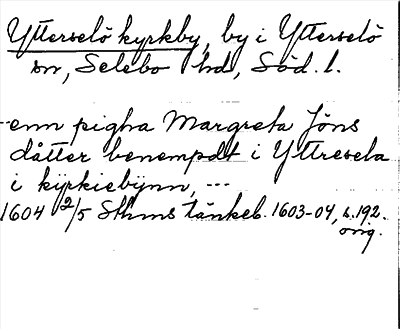 Ytterselö kyrkby, by i Ytterselö
sn, Selebo hd, Söd. l.
enn pigha Margreta Jöns
dåtter benempdt i Yttresela
i kÿrkiebÿnn, ---
1604 2/5 Sthms tänkeb. 1603-04, s. 192.
orig.